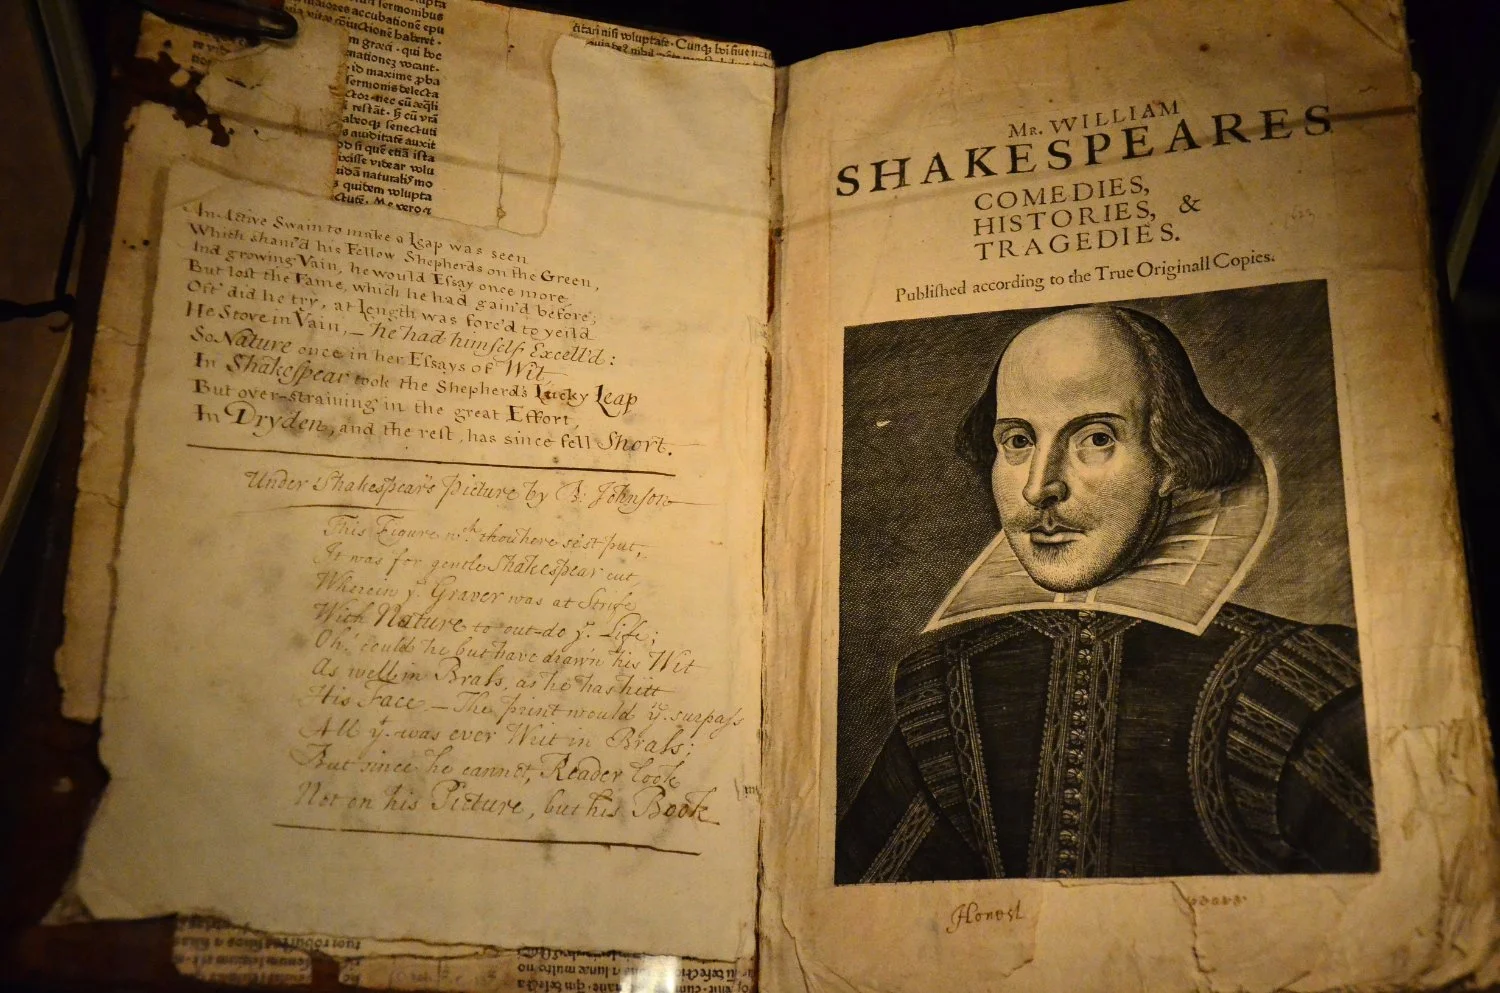 sermonibus
maiores accubationē epu
m græci · qui hoc
mationez vocant·
id maxime ꝓba
sermonis delecta
restāt·
senectuti
auditatē auxit
ꝙ si quē etiā ista
naturalis mo
quidem volupta
Me vero
citari nisi voluptate· Cunqꝫ
An Active Swain to make a Leap was seen
Which sham'd his Fellow Shepherds on the Green,
And growing Vain, he would Essay once more,
But lost the Fame, which he had gain'd before;
Oft' did he try, at Length was forc'd to yeild
He Strove in Vain, – he had himself Excell'd:
So Nature once in her Essays of Wit,
In Shakespear took the Shepherd's Lucky Leap
But over-straining in the great Effort,
In Dryden, and the rest, has since fell Short.
Under Shakespear's Picture by B: Johnson
This Figure wch. thou here se'st put,
It was for gentle Shakespear cut,
Wherein ye. Graver was at Strife
With Nature to out-do ye. Life;
Oh! could he but have drawn his Wit
As well in Brass, as he has hitt
His Face – The print would yn. surpass
All yt. was ever Writ in Brass;
But since he cannot, Reader look
Not on his Picture, but his Book
Mr. WILLIAM
SHAKESPEARES
COMEDIES,
HISTORIES, &
TRAGEDIES.
Publiſhed according to the True Originall Copies.
Honest